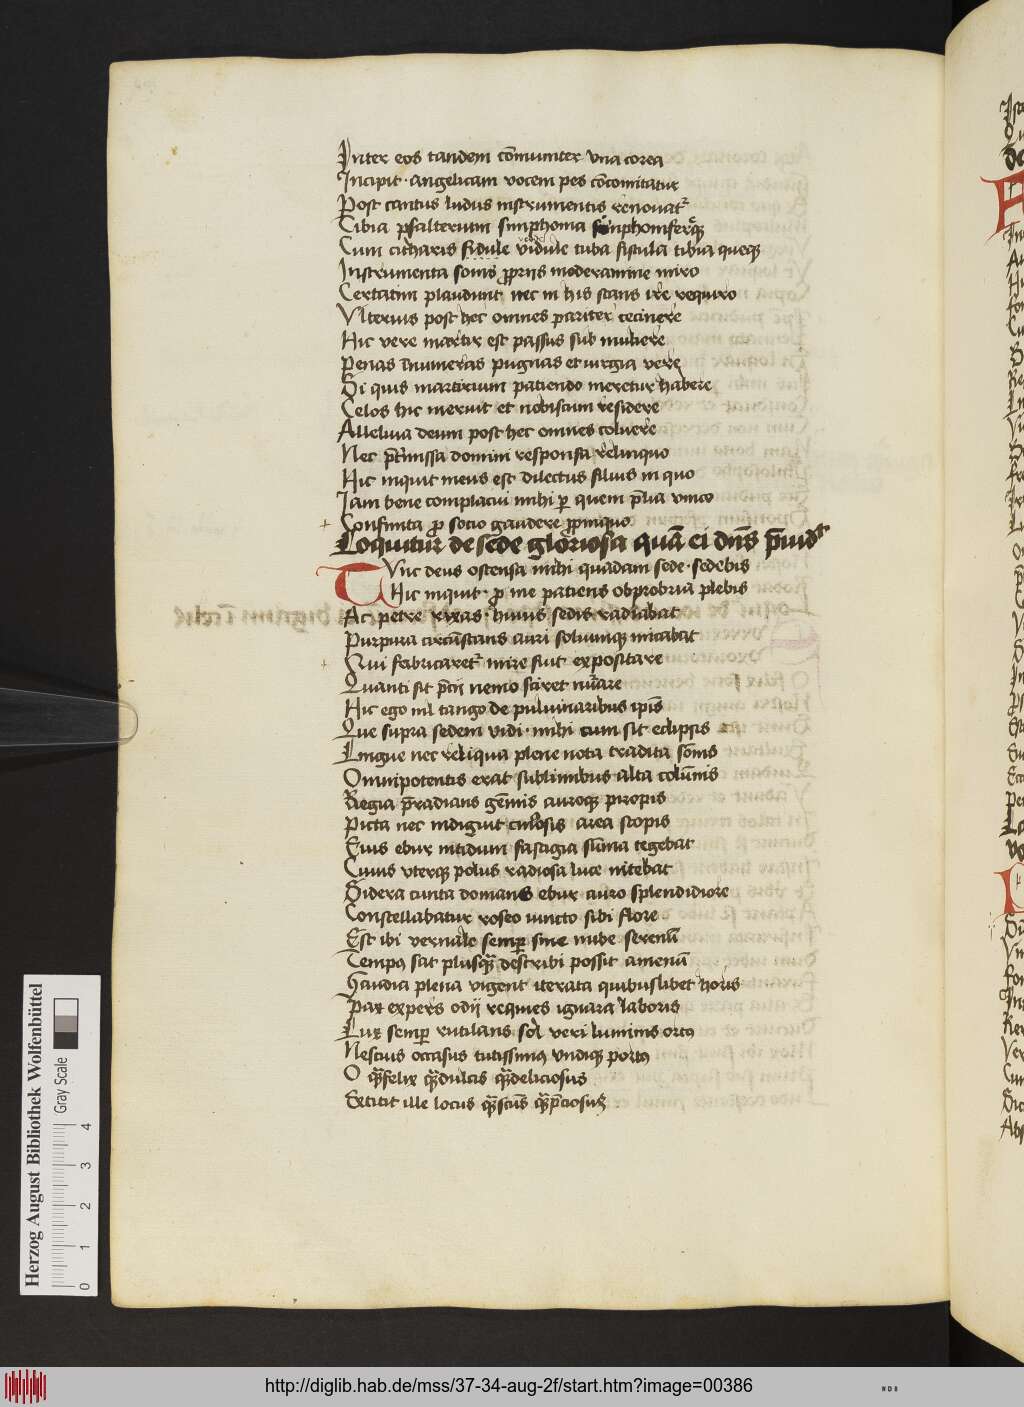 Inter eos tandem cōmuniter vna corea
Incipit · angelicam vocem pes cōcomitatur
Post cantus ludus instrumentis renouatᷣ
Tibia psalterium simphonia simphoniferqꝫ
Cum citharis fidule vidule tuba fistula tibia queqꝫ
Instrumenta sonis ꝓprijs moderamine miro
Certatim plaudunt nec in his stans ire requiro
Vlterius post hec omnes pariter cecinere
Hic vere martir est passus sub muliere
Penas īnumeras pugnas et iurgia vere
Si quis martirium patiendo meretur habere
Celos hic meruit et nobiscum residere
Alleluia deum post hec omnes coluere
Nec p̄missa domini responsa relinquo
Hic inquit meus est dilectus filius in quo
Iam bene complacui mihi ꝑ quem p̄lia vinco
Confinita ꝓ socio gaudere ꝓpinquo
Loquitur de sede gloriosa quā ei dn̄s p̄uidᷣt
Tvnc deus ostensa mihi quadam sede · sedebis
Hic inquit · ꝓ me patiens obprobria plebis
Ac petre rixas · huius sedis radiabat
Purpura circūstans auri soliumqꝫ micabat
Qui fabricaretᷣ mire siut expositare
Quanti sit p̄cij nemo sciret nūrare
Hic ego nil tango de puluinaribus ipīs
Que supra sedem vidi · mihi cum sit eclipsis
Lingue nec reliqua plene nota tradita sōnis
Omnipotentis erat sublimibus alta colūnis
Regia p̄radians gēmis auroqꝫ piropis
Picta nec indiguit area scopis
Eius ebur nitidum fastigia sūma tegebat
Cuius vterqꝫ polus radiosa luce nitebat
Sidera cunta domans ebur auro splendidiore
Constellabatur roseo iuncto sibi flore
Est ibi vernale semꝑ sine nube serenū
Tempꝰ sat plusqꝫ describi possit amenū
Gaudia plena vigent iterata quibuslibet horis
Pax expers odij requies ignara laboris
Lux semꝑ rutilans sol veri luminis ortꝰ
Nescius occasus tutissimꝰ vndiqꝫ portꝰ
O qꝫ felix qꝫ dulcis qꝫ deliciosus
Extitit ille locus qꝫ scūs qꝫ p̄ciosus
Herzog August Bibliothek Wolfenbüttel
Gray Scale
0 1 2 3 4
http://diglib.hab.de/mss/37-34-aug-2f/start.htm?image=00386